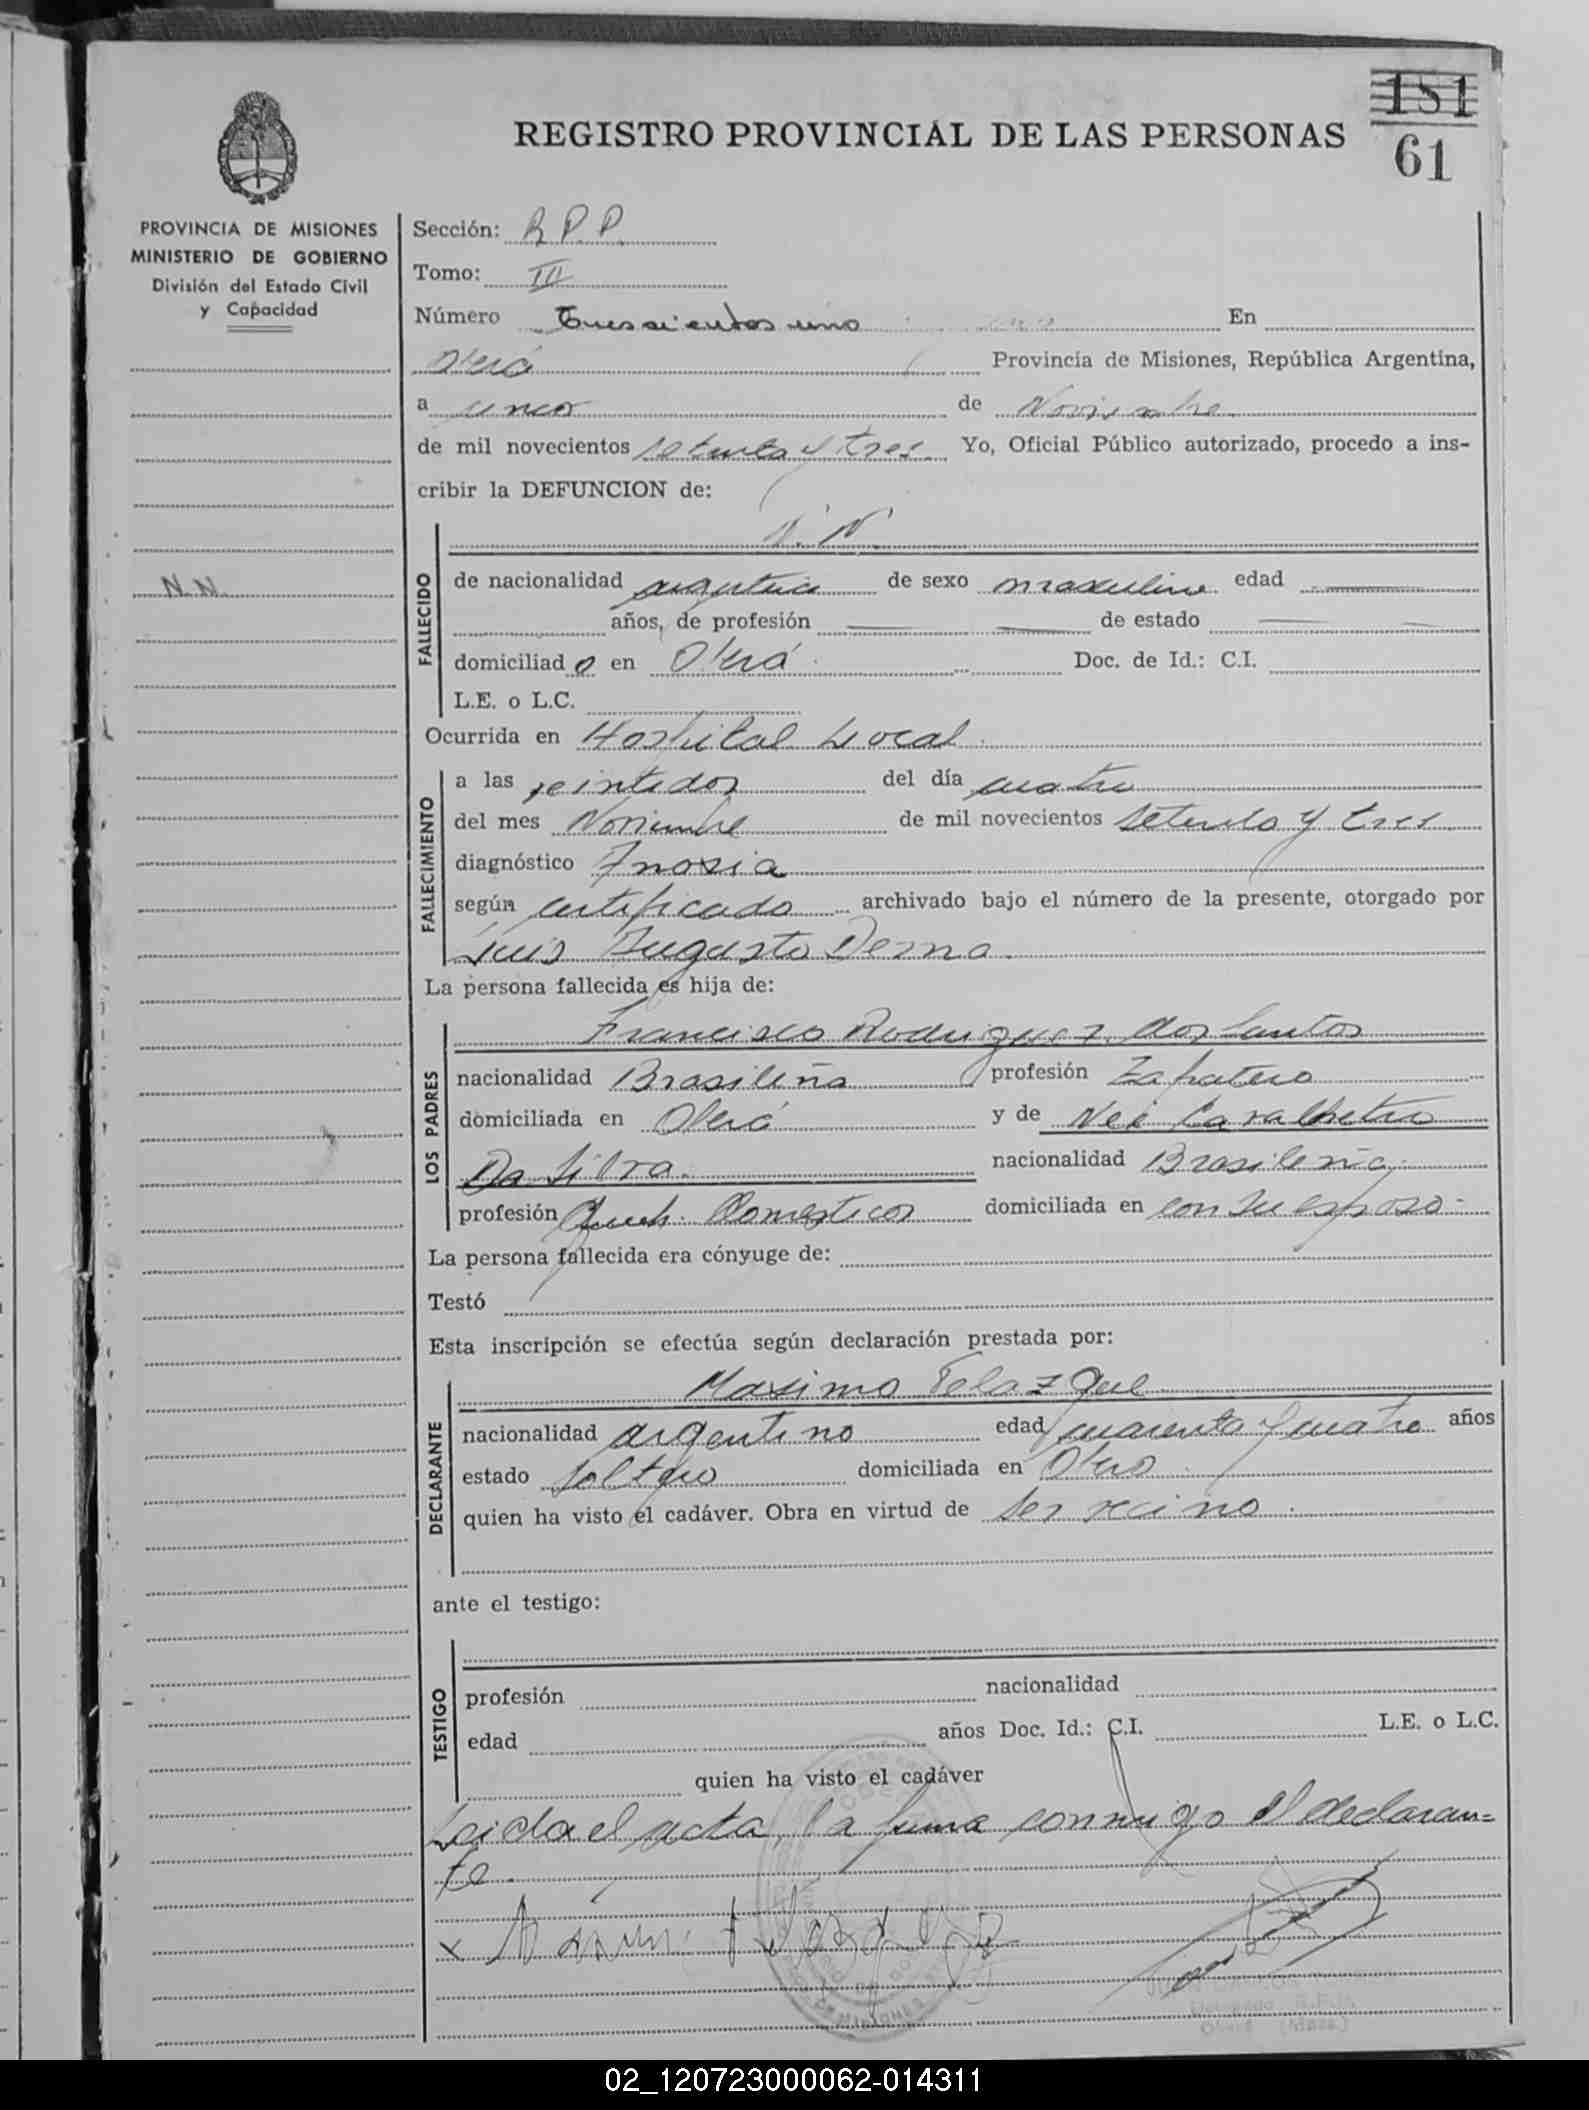 181
61
REGISTRO PROVINCIAL DE LAS PERSONAS
PROVINCIA DE MISIONES
MINISTERIO DE GOBIERNO
División del Estado Civil
y Capacidad
N.N.
Sección: R.P.P.
Tomo: III
Número Trescientos uno En
Oberá Provincia de Misiones, República Argentina,
a cinco de Noviembre
de mil novecientos setenta y tres. Yo, Oficial Público autorizado, procedo a ins-
cribir la DEFUNCION de:
N.N.
FALLECIDO
de nacionalidad argentina de sexo masculino edad
años, de profesión de estado
domiciliado en Oberá. Doc. de Id.: C.I.
L.E. o L.C.
Ocurrida en Hospital Local.
FALLECIMIENTO
a las veintidos del día cuatro
del mes Noviembre de mil novecientos setenta y tres
diagnóstico Anoxia
según certificado archivado bajo el número de la presente, otorgado por
Luis Augusto Derna.
La persona fallecida es hija de:
LOS PADRES
Francisco Rodriguez dos Santos
nacionalidad Brasileña profesión Zapatero
domiciliada en Oberá y de Nei
Da Silva. nacionalidad Brasileña.
profesión Queh. Domesticos domiciliada en con su esposo-
La persona fallecida era cónyuge de:
Testó
Esta inscripción se efectúa según declaración prestada por:
DECLARANTE
Maximo Velazque
nacionalidad argentino edad cuarenta y cuatro años
estado soltero domiciliada en Oberá.
quien ha visto el cadáver. Obra en virtud de ser vecino.
ante el testigo:
TESTIGO
profesión nacionalidad
edad años Doc. Id.: C.I. L.E. o L.C.
quien ha visto el cadáver
Leida el acta, la firma conmigo el declaran=
te.
02_120723000062-014311